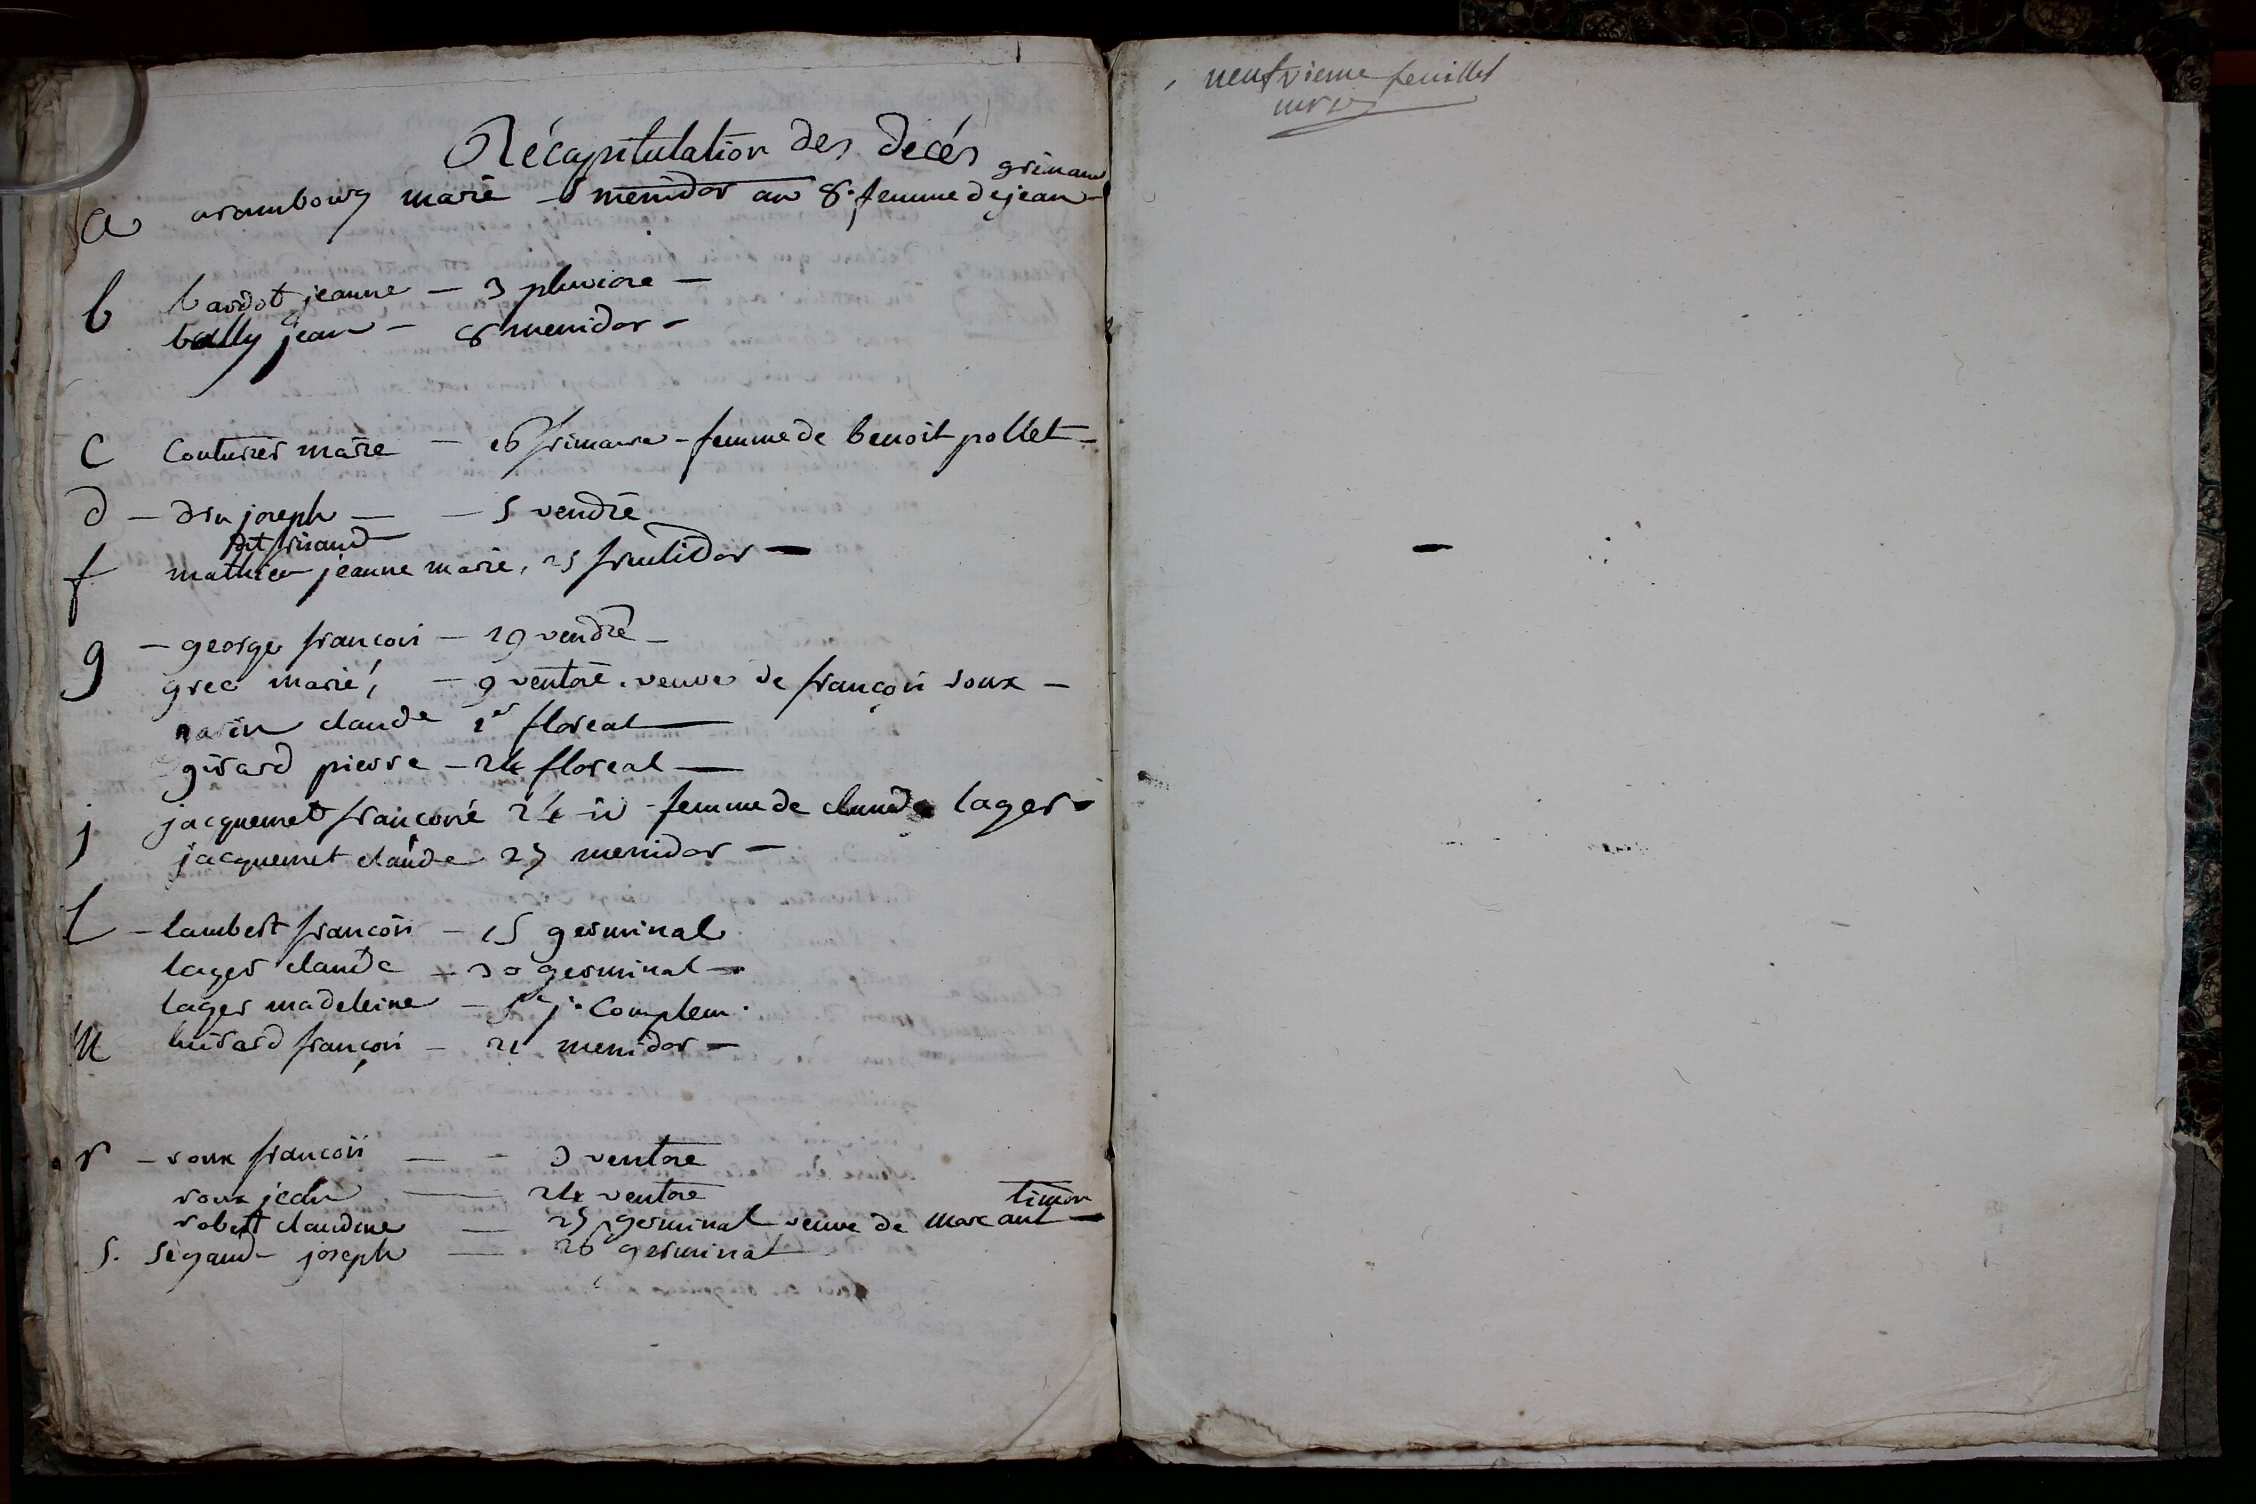 Récapitulation des decés
grimaud
a arambourg marie - 6 messidor an 8. femme de jean -
b bardot jeanne - 3 pluviose -
bally jean - 8 messidor -
C Couturier marie - 16 frimaire - femme de benoit pollet -
d - dru joseph - - 5 vendre
dit friaud
f mathieu jeanne marie, 25 fructidor -
g - george francois - 19 vendre -
grec marie, - 9 ventose. veuve de françois roux -
claude 1er floreal -
girard pierre - 24 floreal -
j jacquemet francoise 24 id - femme de claude lager -
jacquemet claude 25 messidor -
l - lambert francois - 15 germinal
lager claude - 30 germinal -
lager madeleine - 5e j. Complem.
M huirard françois - 21 messidor -
r - roux francois - - 3 ventose
roux jean - 24 ventose
timon
robert claudine - 25 germinal veuve de marc ant -
S. Segaud joseph - 26 germinal
neufvieme feuillet